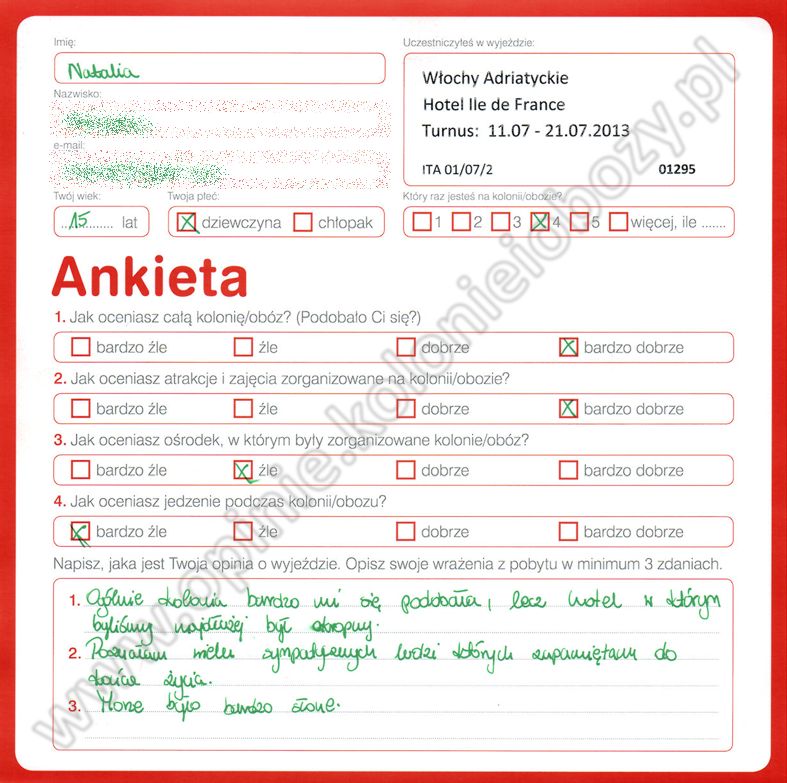 Imię:
Natalia
Nazwisko:
e-mail:
Uczestniczyłeś w wyjeździe:
Włochy Adriatyckie
Hotel Ile de France
Turnus: 11.07 - 21.07.2013
ITA 01/07/2 01295
Twój wiek:
15 lat
Twoja płeć:
dziewczyna chłopak
Który raz jesteś na kolonii/obozie?
1 2 3 4 5 więcej, ile .......
Ankieta
1. Jak oceniasz całą kolonię/obóz? (Podobało Ci się?)
bardzo źle źle dobrze bardzo dobrze
2. Jak oceniasz atrakcje i zajęcia zorganizowane na kolonii/obozie?
bardzo źle źle dobrze bardzo dobrze
3. Jak oceniasz ośrodek, w którym były zorganizowane kolonie/obóz?
bardzo źle źle dobrze bardzo dobrze
4. Jak oceniasz jedzenie podczas kolonii/obozu?
bardzo źle źle dobrze bardzo dobrze
Napisz, jaka jest Twoja opinia o wyjeździe. Opisz swoje wrażenia z pobytu w minimum 3 zdaniach.
1. Ogólnie kolonia bardzo mi się podobała, lecz hotel w którym
byliśmy najdłużej był okropny.
2. Poznałam wielu sympatycznych ludzi których zapamiętam do
końca życia.
3. Morze było bardzo słone.
www.opinie.kolonieiobozy.pl